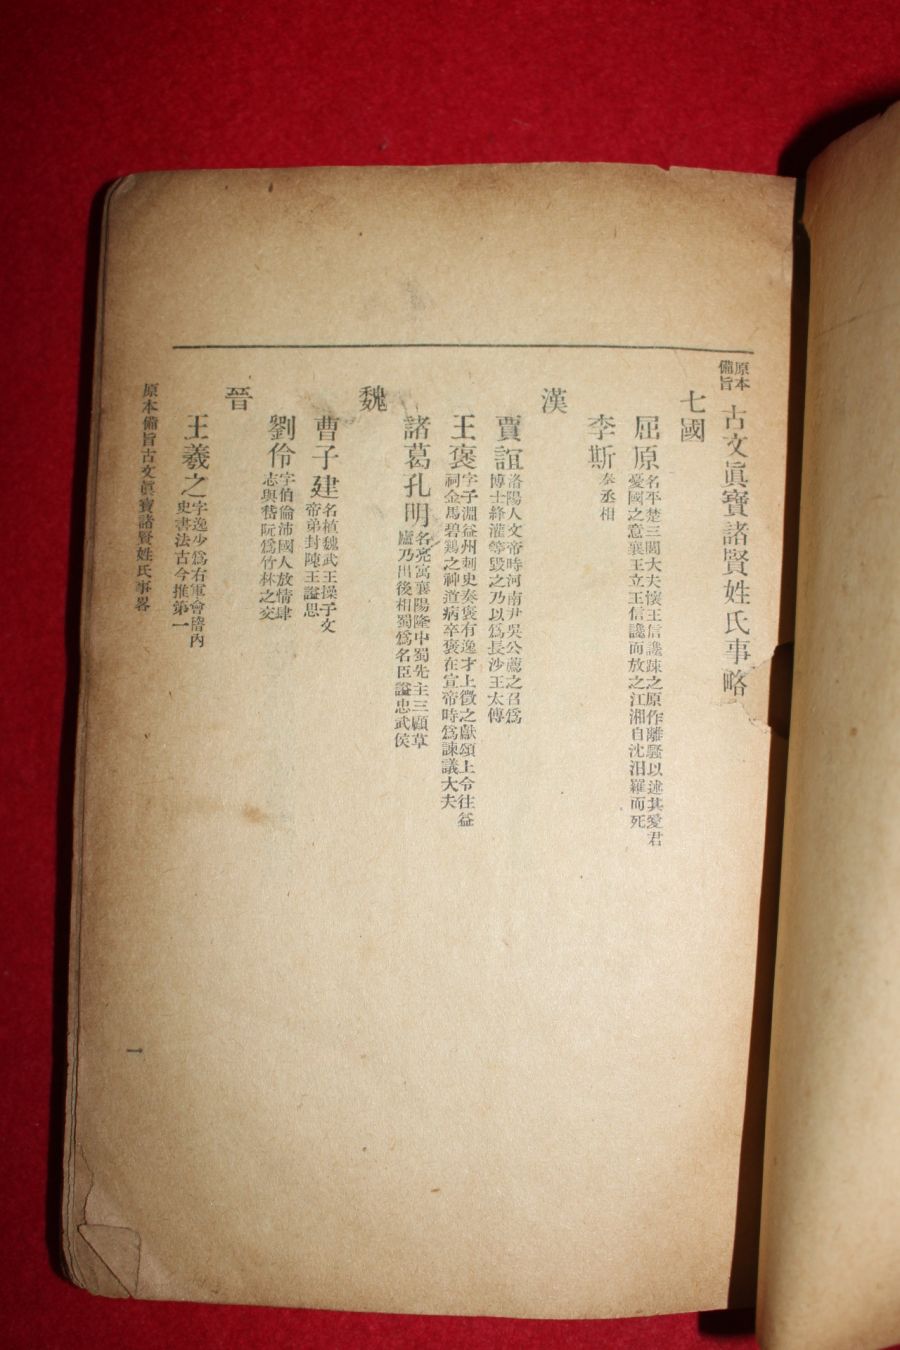 原本備旨 古文眞寶諸賢姓氏事略
七國
屈原 名平楚三閭大夫懷王信讒疎之原作離騷以述其愛君
憂國之意襄王立王信讒而放之江湘自沈汨羅而死
李斯 秦丞相
漢
賈誼 洛陽人文帝時河南尹吳公薦之召爲
博士絳灌等毀之乃以爲長沙王太傅
王褒 字子淵益州刺史奏褒有逸才上徵之獻頌上令往益
祠金馬碧鷄之神道病卒褒在宣帝時爲諫議大夫
諸葛孔明 名亮寓襄陽隆中蜀先主三顧草
廬乃出後相蜀爲名臣謚忠武侯
魏
曹子建 名植魏武王操子文
帝弟封陳王謚思
劉伶 字伯倫沛國人放情肆
志與嵇阮爲竹林之交
晉
王羲之 字逸少爲右軍會稽內
史書法古今推第一
原本備旨古文眞寶諸賢姓氏事畧
一